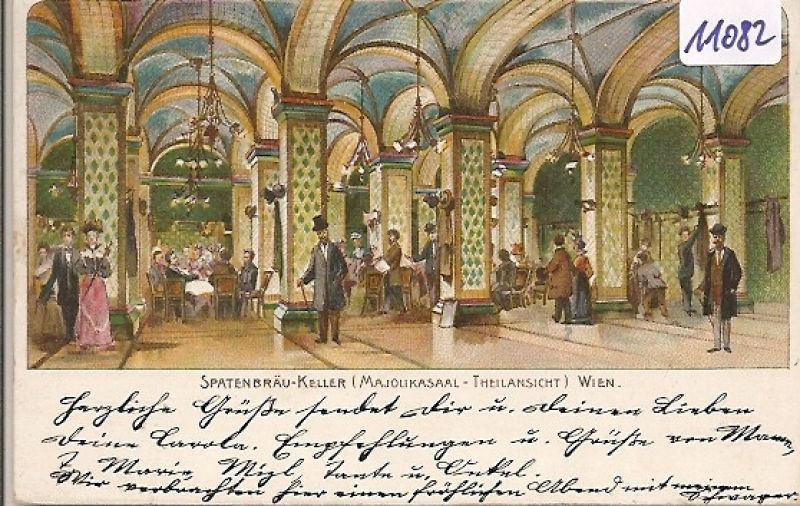 11082
SPATENBRÄU-KELLER (MAJOLIKASAAL - THEILANSICHT) WIEN.
Herzliche Grüße sendet Dir u. Deinen Lieben
Deine Carola. Empfehlungen u. Grüße von Mama,
Marie, Mizl, Tante u. Onkel.
Wir verbrachten hier einen fröhlichen Abend mit meinem
Schwager.